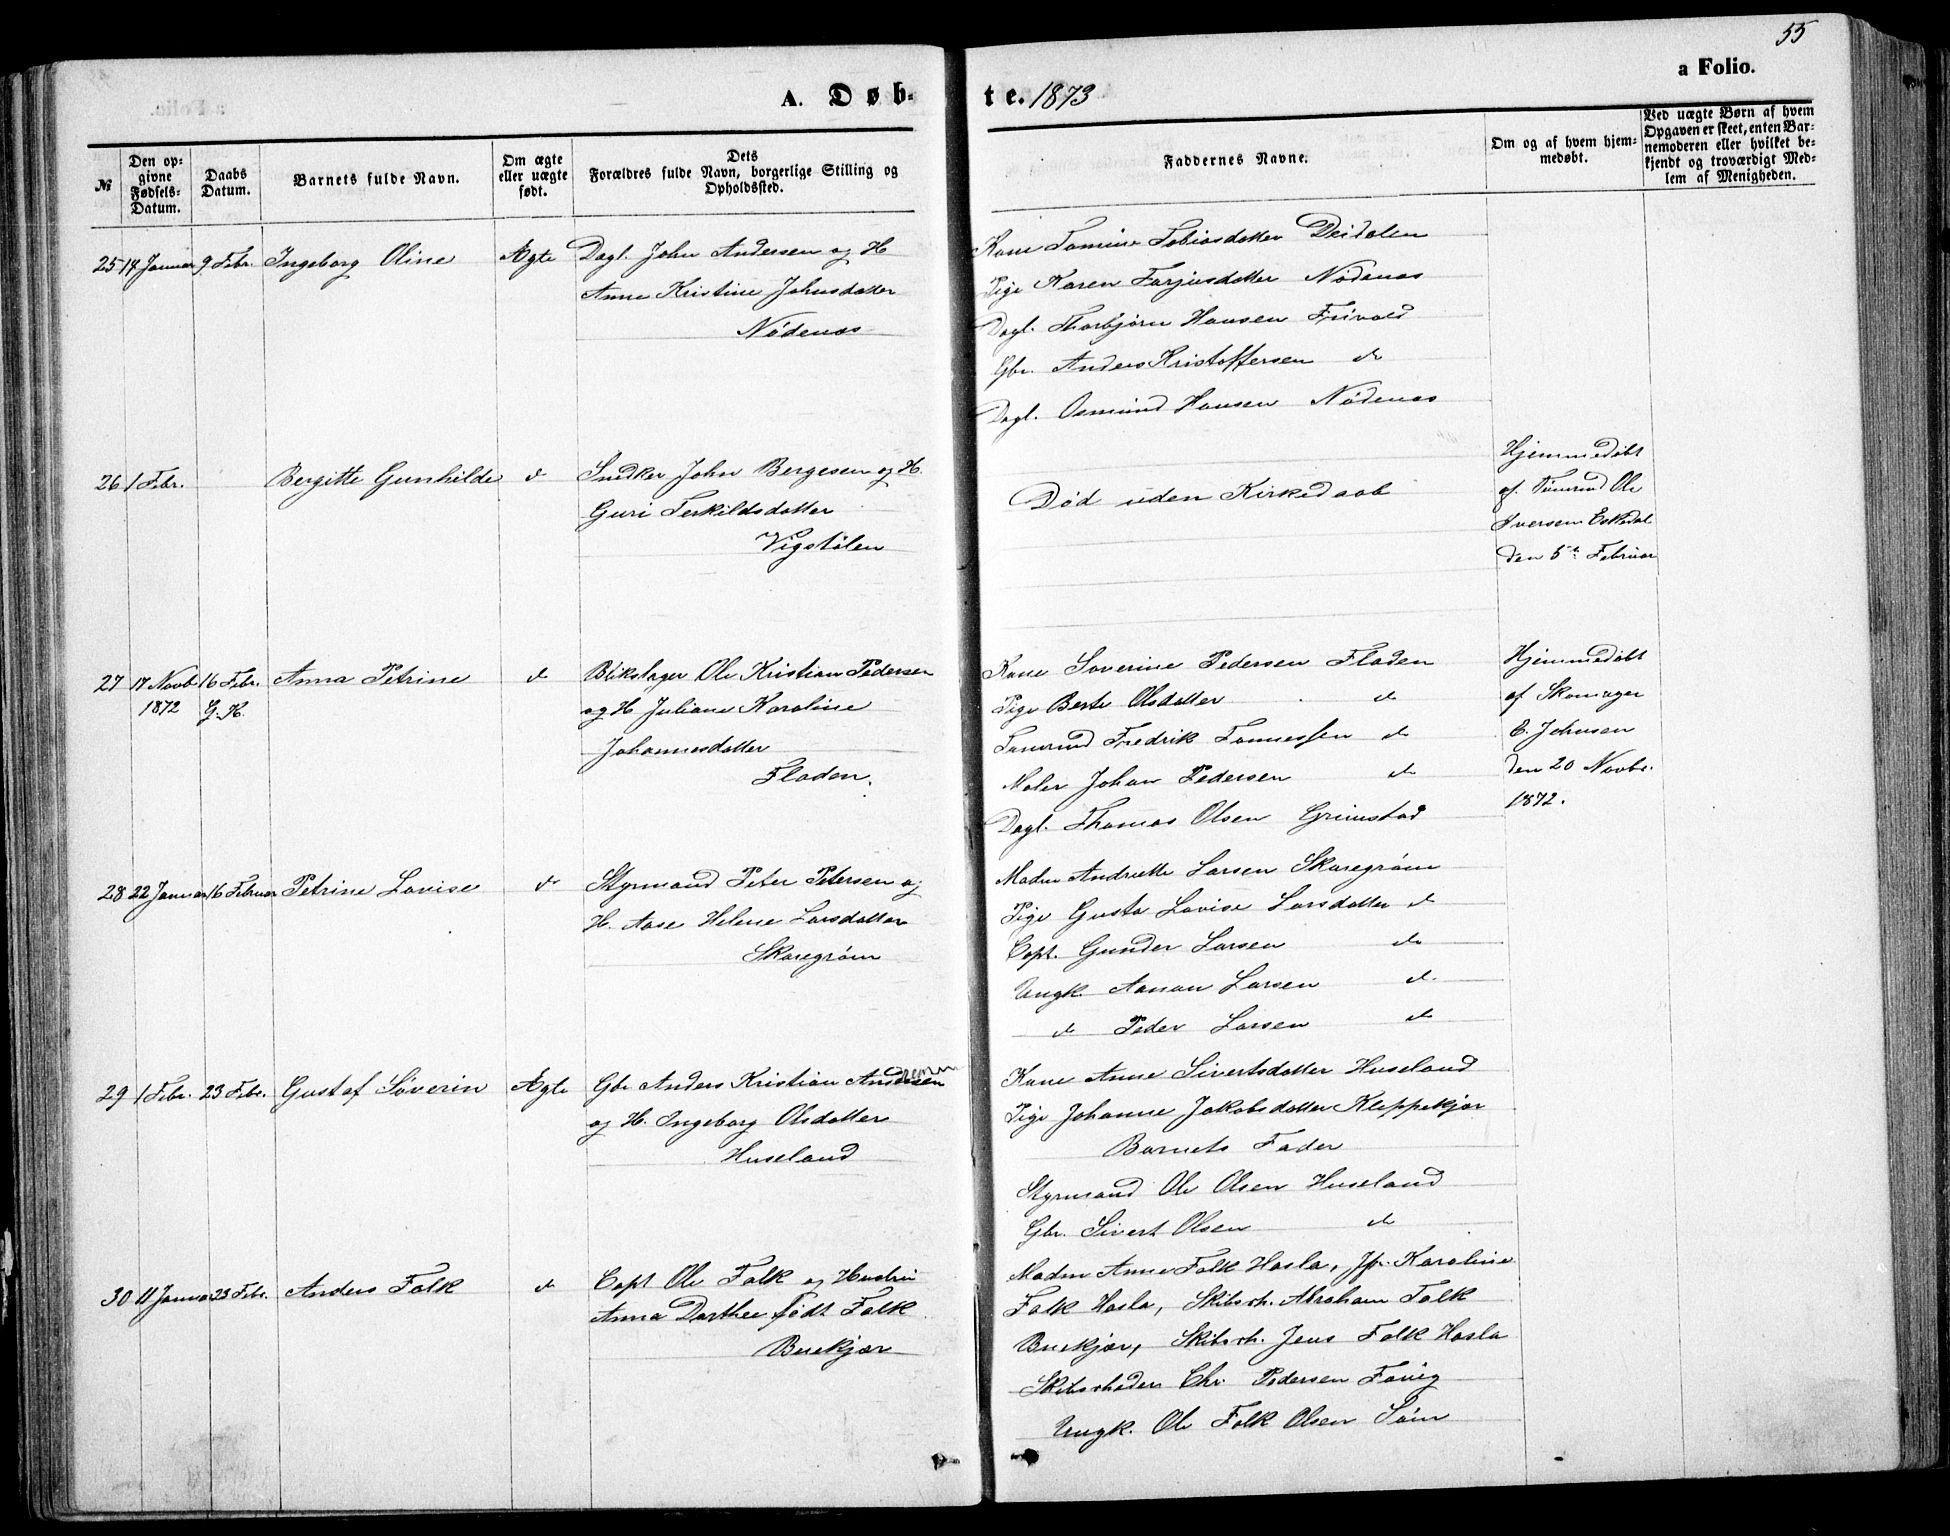 55
a Folio.
A. Døb-
te. 1873
№
Den op-
givne
Fødsels-
Datum.
Daabs
Datum.
Barnets fulde Navn.
Om ægte
eller uægte
født.
Dets
Forældres fulde Navn, borgerlige Stilling og
Opholdssted.
Faddernes Navne.
Om og af hvem hjem-
medøbt.
Ved uægte Børn af hvem
Opgaven er skeet, enten Bar-
nemoderen eller hvilket be-
kjendt og troværdigt Med-
lem af Menigheden.
25 14 Januar 9 Febr. Ingeborg Oline Ægte Dagl. John Andersen og H
Anne Kristine Johnsdatter
Nødenæs
Kone Tomine Tobiasdatter Deidalen
Pige Karen Tarjusdatter Nødenæs
Dagl. Thorbjørn Hansen Frivold
Gbr. Anders Kristoffersen do
Dagl. Osmund Hansen Nødenæs
26 1 Febr. Bergitte Gunhilde do Snedker John Bergesen og H.
Guri Terkildsdatter
Vigstølen
Død uden Kirkedaab
Hjemmedøbt
af Tømmd Ole
Iversen Eskedal
den 5te Februar
27 17 Novb 16 Febr. Anna Petrine do Blikslager Ole Kristian Pedersen
1872 G. K.
og H Juliane Karoline
Johannesdatter
Fladen.
Kone Soverine Pedersen Fladen
Pige Berte Olsdatter do
Tømmrmd Fredrik Tønnessen do
Maler Johan Pedersen do
Dagl. Thomas Olsen Grimstad
Hjemmedøbt
af Skomager
C. Johnsen
den 20 Novbr.
1872.
28 22 Januar 16 Februar Petrine Lovise do Styrmand Peter Petersen og
H. Aase Helene Larsdatter
Skaregrøm
Madm Andriette Larsen Skaregrøm
Pige Gusta Lovise Larsdatter do
Capt. Gunder Larsen do
Ungk. Aanon Larsen do
do Peder Larsen do
29 1 Febr. 23 Febr. Gustaf Søverin Ægte Gbr Anders Kristian Andersen
og H. Ingeborg Olsdatter
Huseland
Kone Anne Sivertsdatter Huseland
Pige Johanne Jakobsdatter Kleppekjær
Barnets Fader
Styrmand Ole Olsen Huseland
Gbr. Sivert Olsen do
30 11 Januar 23 Febr. Anders Falk do Capt Ole Falk og Hustru
Anna Dorthee født Falk
Buekjær
Madm Anne Falk Hasla, Jfr. Karoline
Falk Hasla, Skibsrh. Abraham Falk
Buekjær, Skibsrh. Jens Falk Hasla
Skibsrheder Chr. Pedersen Favig
Ungk. Ole Falk Olsen Søm